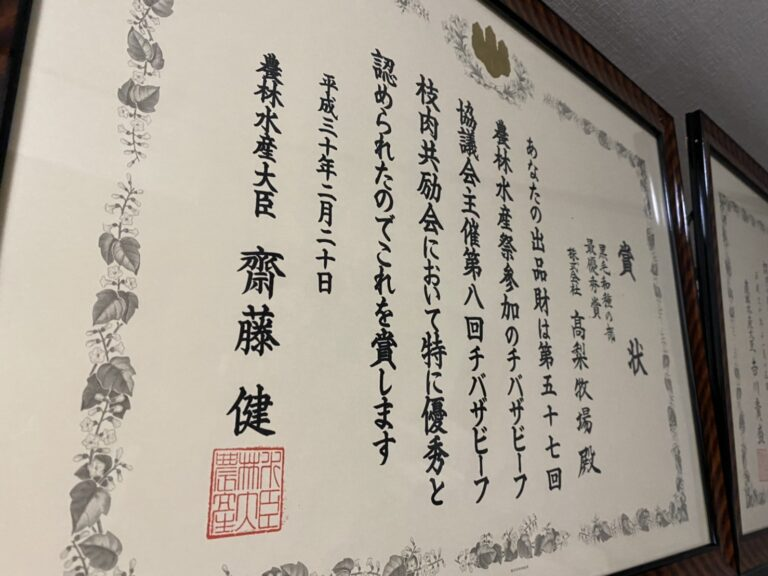 賞状
黒毛和種の部
最優秀賞
株式会社 高梨牧場 殿
あなたの出品財は第五十七回
農林水産祭参加のチバザビーフ
協議会主催第八回チバザビーフ
枝肉共励会において特に優秀と
認められたのでこれを賞します
平成三十年二月二十日
農林水産大臣 齋藤 健